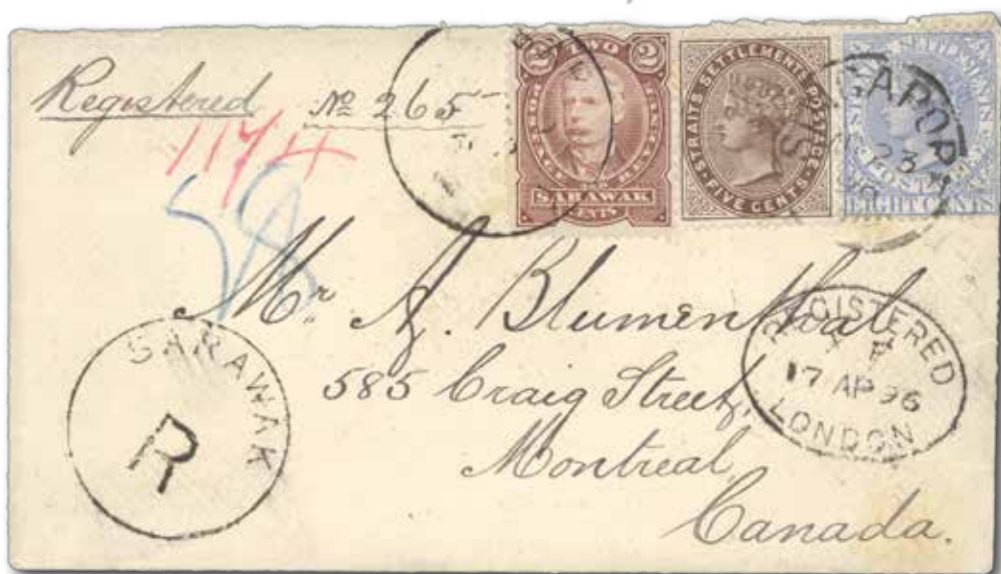 Registered No 265
1174
58
2 TWO 2
SARAWAK
CENTS
STRAITS SETTLEMENTS POSTAGE
FIVE CENTS
SETTLEMENTS
POSTAGE
EIGHT CENTS
Mr A. Blumenthal
585 Craig Street,
Montreal,
Canada.
SARAWAK
R
REGISTERED
17 AP 96
LONDON